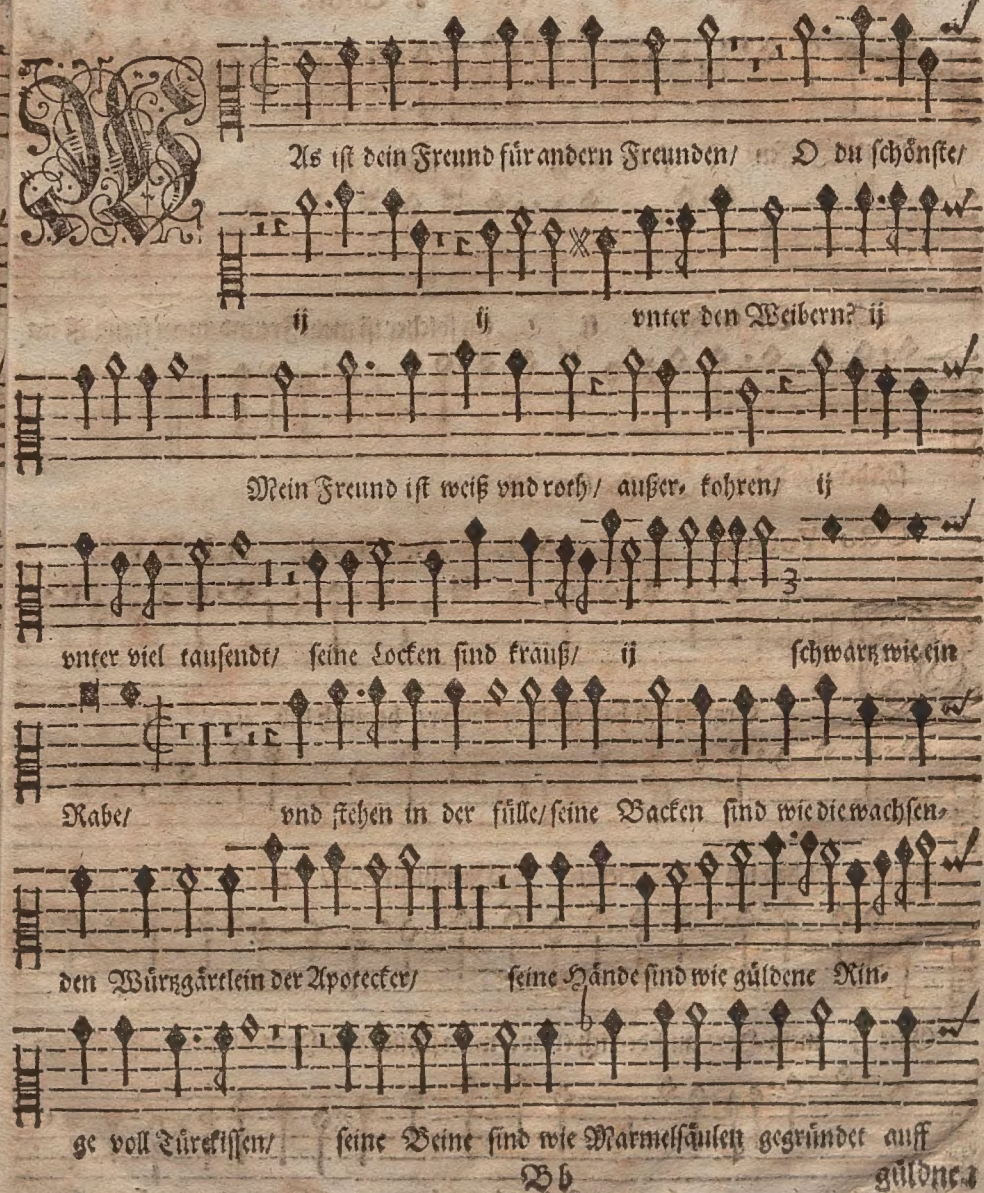 WAs ist dein Freund für andern Freunden/ O du schönste/
ij ij vnter den Weibern? ij
Mein Freund ist weiß vnd roth/ außer- kohren/ ij
vnter viel tausendt/ seine Locken sind krauß/ ij schwartz wie ein
3
Rabe/ vnd stehen in der fülle/ seine Backen sind wie die wachsen-
den Würtzgärtlein der Apotecker/ seine Hände sind wie güldene Rin-
ge voll Türckissen/ seine Beine sind wie Marmelsäulen gegründet auff
Bb güldnen